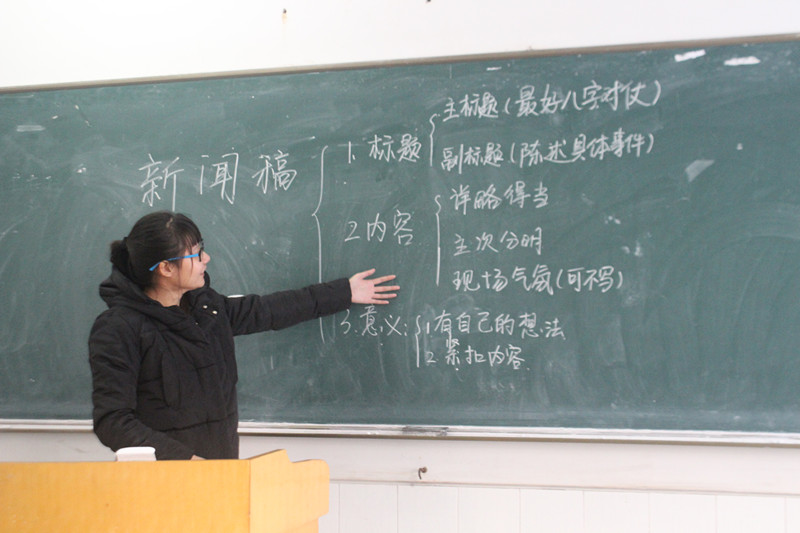 新闻稿
1. 标题
主标题(最好八字对仗)
副标题(陈述具体事件)
2 内容
详略得当
主次分明
现场气氛(可不写)
3. 意义:
1. 有自己的想法
2. 紧扣内容